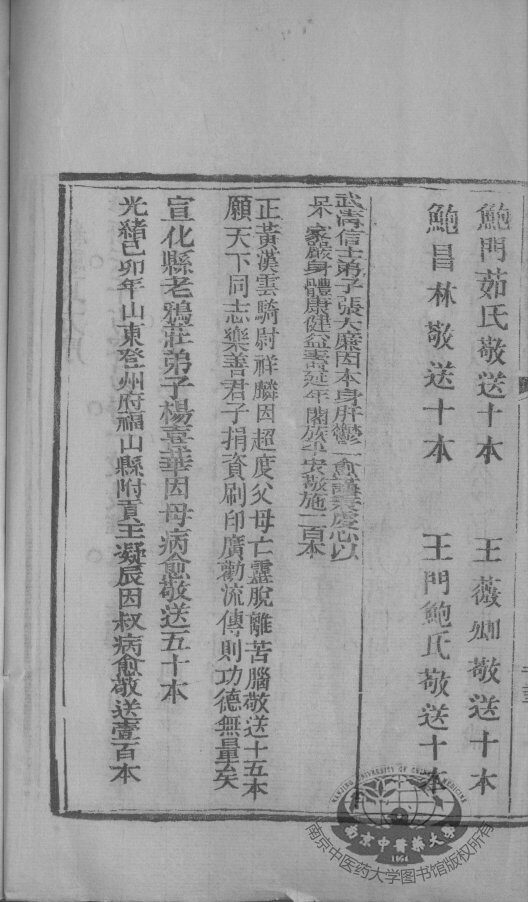 鮑門茹氏敬送十本　王薇卿敬送十本
鮑昌林敬送十本　王門鮑氏敬送十本
武清信士弟子張大廉因本身肝鬱一愈謹業虔心以
家嚴身體康健益壽延年闔族平安敬施二百本
正黃漢雲騎尉祥麟因超度父母亡靈脫離苦腦敬送十五本
願天下同志樂善君子捐資刷印廣勸流傳則功德無量矣
宣化縣老鴉莊弟子楊喜華因母病愈敬送五十本
光緒己卯年山東登州府福山縣附貢王凝辰因叔病愈敬送壹百本
南京中醫藥大學
1954
南京中医药大学图书馆版权所有